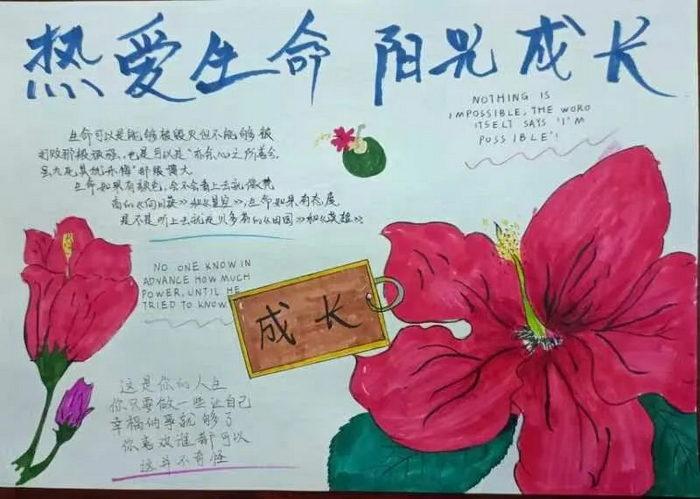 热爱生命 阳光成长
NOTHING IS
IMPOSSIBLE, THE WORD
ITSELF SAYS 'I'M
POSSIBLE'!
生命可以是能够被毁灭但不能够被
打败那般顽强,也是可以是"亦余心之所善兮,
虽九死其犹未悔"那般博大
生命如果有颜色,会不会看上去就像梵
高的《向日葵》和《星空》,生命如果有态度
是不是听上去就是贝多芬的《田园》和《英雄》
NO ONE KNOW IN
ADVANCE HOW MUCH
POWER, UNTIL HE
TRIED TO KNOW
成长
这是你的人生
你只要做一些让自己
幸福的事就够了
你喜欢谁都可以
这并不奇怪